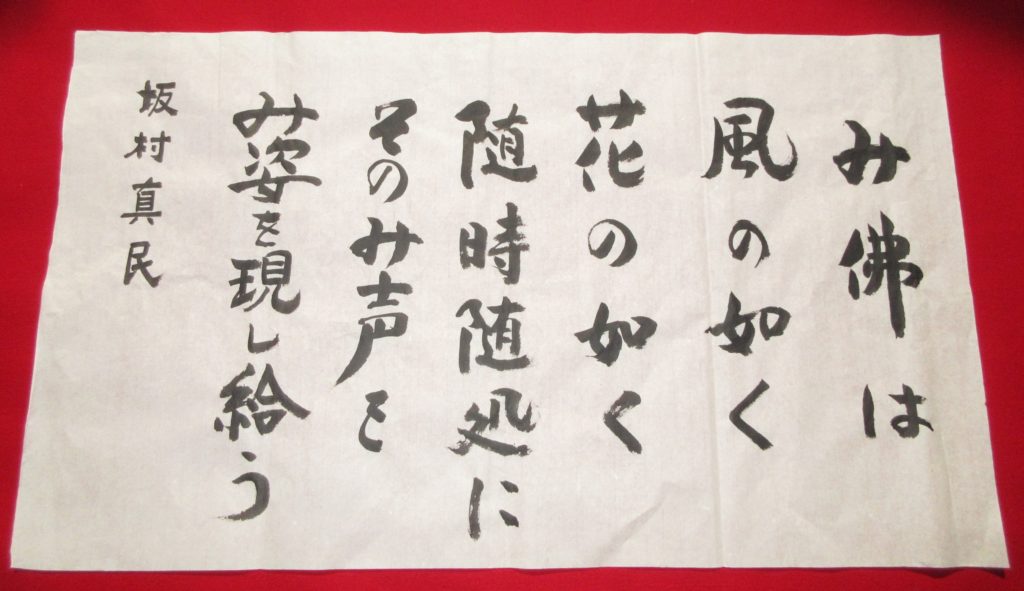 み佛は
風の如く
花の如く
随時随処に
そのみ声を
み姿を現し給う
坂村真民